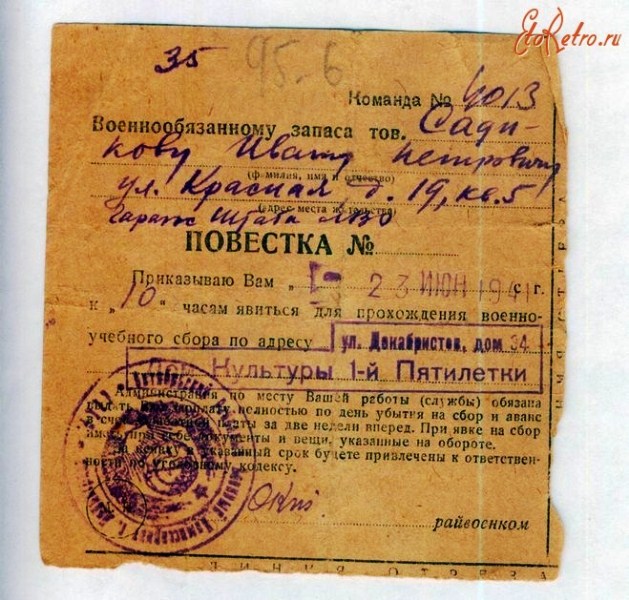 EtoRetro.ru
35
95-6
Команда № 4013
Военнообязанному запаса тов. Сади-
кову Ивану Петровичу
(фамилия, имя и отчество)
ул. Красная д. 19, кв. 5
(адрес места жительства)
Гараж Штаба ЛВО
ПОВЕСТКА №
Приказываю Вам „ 23 ИЮН 1941 с. г.
к „10“ часам явиться для прохождения военно-
учебного сбора по адресу ул. Декабристов, дом 34
Дом Культуры 1-й Пятилетки
Администрация по месту Вашей работы (службы) обязана
выдать Вам зарплату полностью по день убытия на сбор и аванс
в счет заработной платы за две недели вперед. При явке на сбор
иметь при себе документы и вещи, указанные на обороте.
За неявку в указанный срок будете привлечены к ответствен-
ности по уголовному кодексу.
райвоенком
ЛИНИЯ ОТРЕЗА